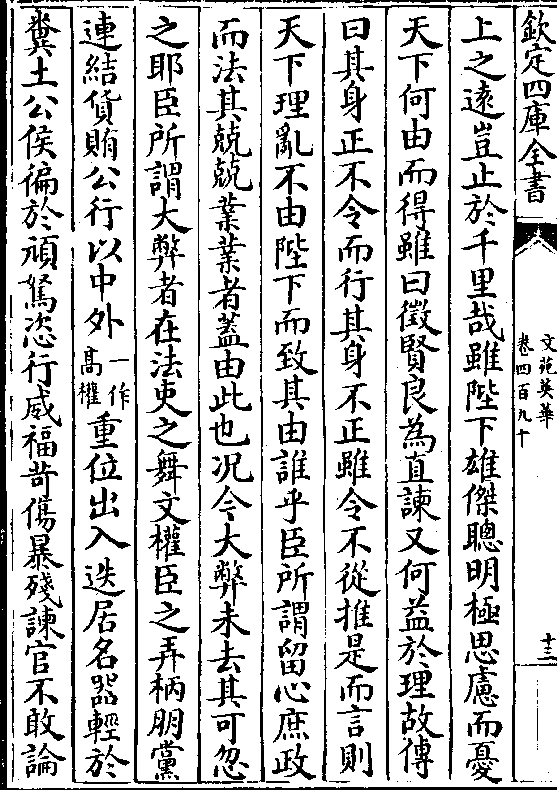 欽定四庫全書
文苑英華
卷四百九十
十三
上之遠豈止於千里哉雖陛下雄傑聰明極思慮而憂
天下何由而得雖曰徵賢良為直諫又何益於理故傳
曰其身正不令而行其身不正雖令不從推是而言則
天下理亂不由陛下而致其由誰乎臣所謂留心庶政
而法其兢兢業業者蓋由此也況今大弊未去其可忽
之耶臣所謂大弊者在法吏之舞文權臣之弄柄朋黨
連結貨賄公行以中外一作高權重位出入迭居名器輕於
糞土公侯徧於頑駑恣行威福苛傷暴殘諫官不敢論